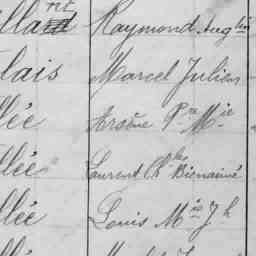 Raymond Aug tin
lais Marcel Julien
lée Arsène P re M ie
lée Laurent Ch les Bienaimé
lée Louis M ie J h